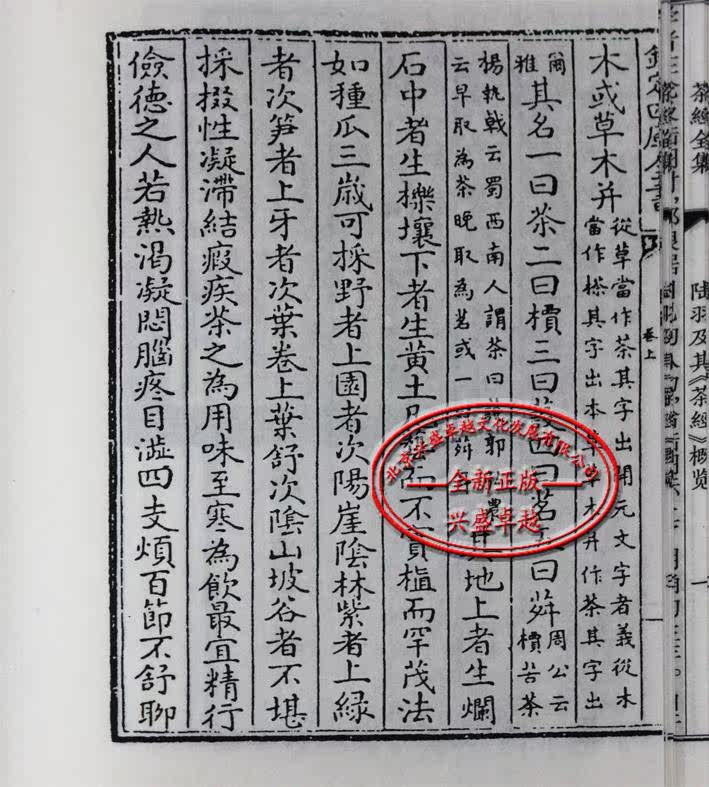 茶经全集
陆羽及其《茶经》概览
一
欽定四庫全書
卷上
木或草木并
從草當作茶其字出開元文字者義從木
當作其字出本草木并作茶其字出
爾雅
其名一曰茶二曰檟三曰蔎曰茗曰荈
周公云
檟苦茶
楊執㦸云蜀西南人謂茶曰郭
云早取為茶晚取為茗或一
地上者生爛
石中者生櫟壤下者生黄土凡而不實植而罕茂法
如種瓜三歳可採野者上園者次陽崖隂林紫者上緑
者次笋者上牙者次葉卷上葉舒次隂山坡谷者不堪
採掇性凝滯結瘕疾茶之為用味至寒為飲最宜精行
儉德之人若熱渴凝悶腦疼目澁四支煩百節不舒聊
北京兴盛卓越文化发展有限公司
全新正版
兴盛卓越